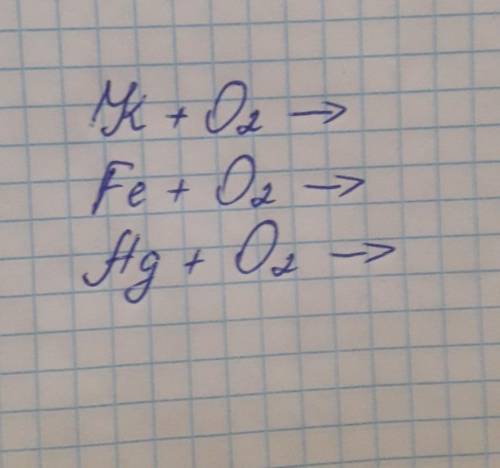 K + O₂ →
Fe + O₂ →
Hg + O₂ →